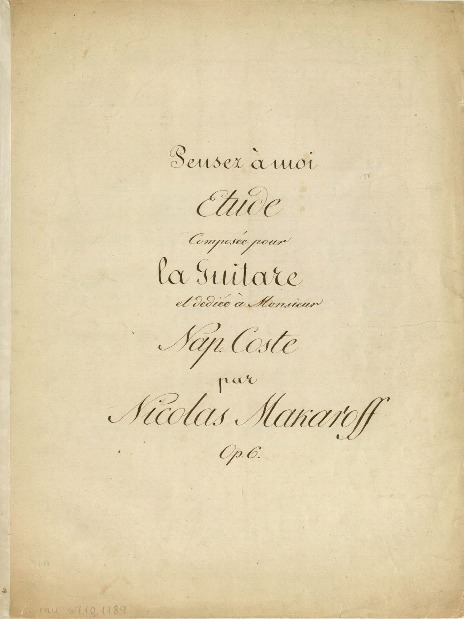 Pensez à moi
Etude
Composée pour
la Guitare
et dediée à Monsieur
Nap. Coste
par
Nicolas Makaroff
Op. 6.